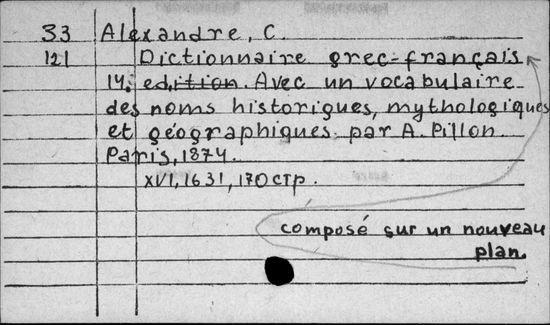 33 Alexandre, C.
121 Dictionnaire grec-français
14. edition. Avec un vocabulaire
des noms historiques, mythologiques
et géographiques par A. Pillon
Paris, 1874.
XVI, 1631, 170 стр.
composé sur un nouveau
plan.